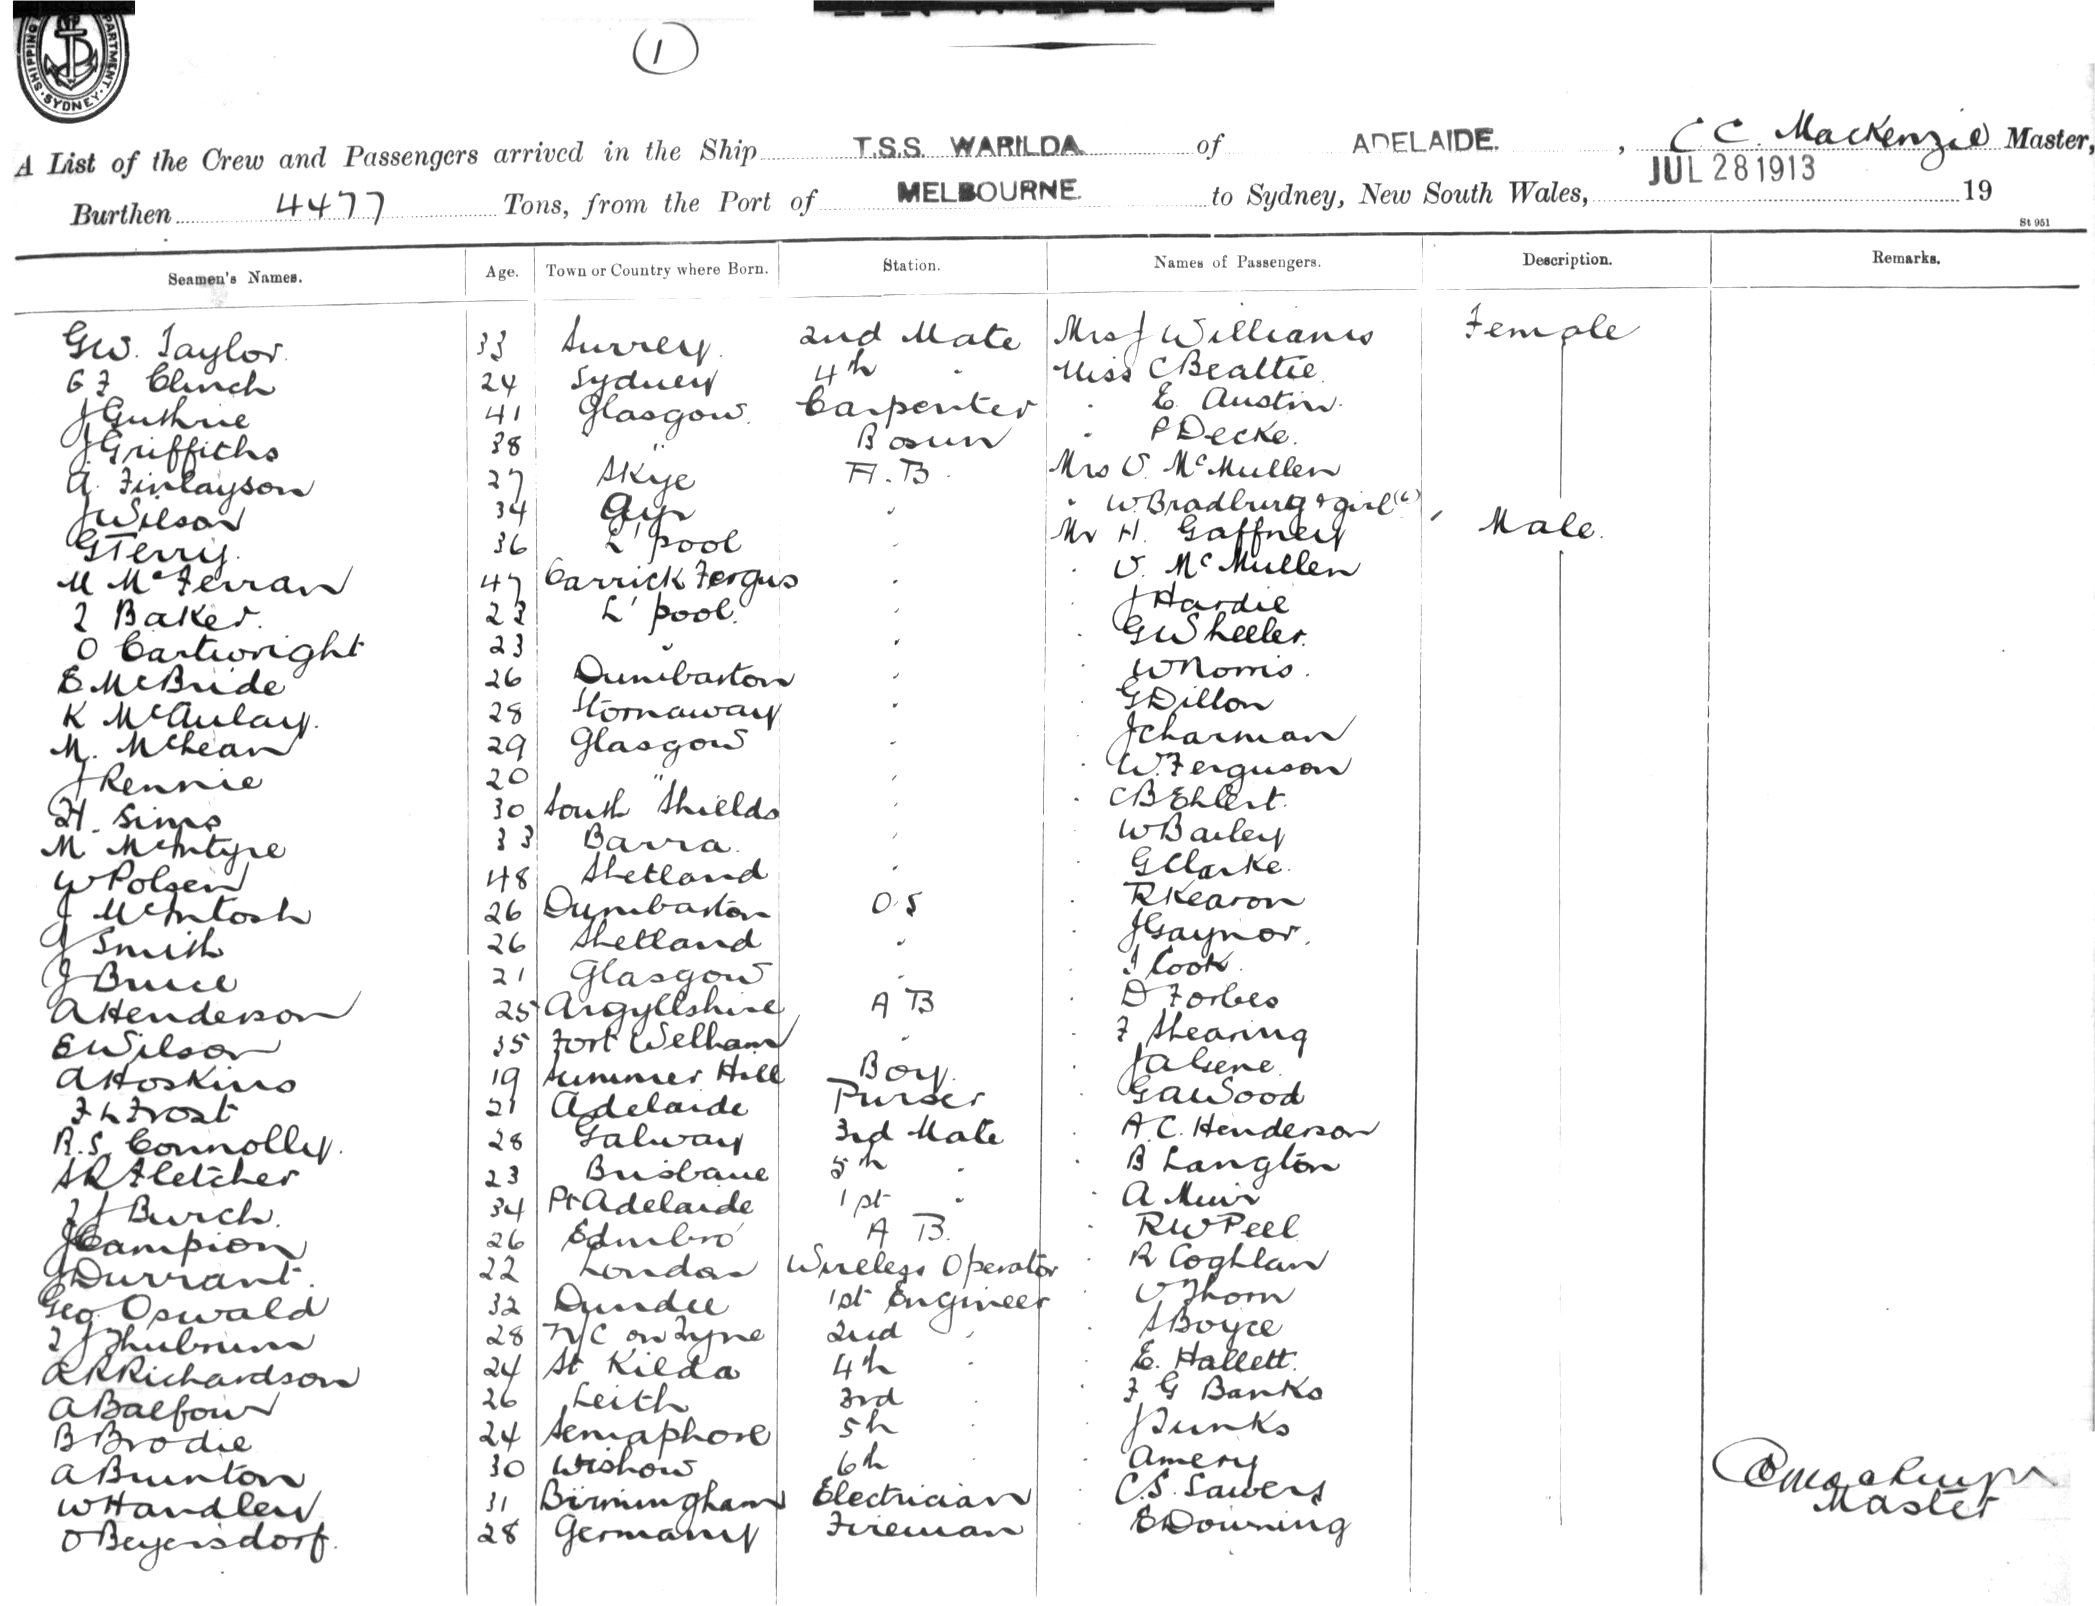 SHIPPING DEPARTMENT. SYDNEY.
1
A List of the Crew and Passengers arrived in the Ship T.S.S. WARILDA of ADELAIDE. , C C. MacKenzie Master,
Burthen 4477 Tons, from the Port of MELBOURNE. to Sydney, New South Wales, JUL 28 1913 19
St 951
Seamen's Names. Age. Town or Country where Born. Station. Names of Passengers. Description. Remarks.
GW. Taylor. 33 Surrey. 2nd Mate Mrs J Williams Female
G F Clinch 24 Sydney 4th " Miss C Beattie
J Guthrie 41 Glasgow. Carpenter " E. Austin.
J Griffiths 38 " Bosun " P Decke.
A. Finlayson 27 Skye A.B. Mrs V. McMullen
J Wilson 34 Ayr " " W. Bradbury & girl
G Terry. 36 L'pool " Mr H. Gaffney Male.
M McFerran 47 Carrick Fergus " " V. McMullen
Baker. 23 L'pool. " " J Hardie
O Cartwright 23 " " " G Wheeler.
E McBride 26 Dumbarton " " W Norris.
K McAulay. 28 Stornaway " " G Dillon
M. McLean 29 Glasgow " " J Charman
J Rennie 20 " " " W. Ferguson
H. Sims 30 South Shields " " C B Ehlert.
M. McIntyre 33 Barra. " " W Bailey
W Polsen 48 Shetland " " G Clarke.
J McIntosh 26 Dumbarton O.S " R Kearon
J Smith 26 Shetland " " J Gaynor.
J Bruce 21 Glasgow " " Cook.
A Henderson 25 Argyllshire A B " D Forbes
E Wilson 35 Fort Welham " " F Shearing
A Hoskins 19 Summer Hill Boy. " J A
F L Frost 21 Adelaide Purser " G A Wood
R.S. Connolly. 28 Galway 3rd Mate " A.C. Henderson
Fletcher 23 Brisbane 5th " " B Langton
J Burch. 34 Pt Adelaide 1st " " A Muir
J Campion 26 Edinbro' A B. " R W Peel
J Durrant. 22 London Wireless Operator " R Coghlan
Geo. Oswald 32 Dundee 1st Engineer " V Thorn
J Thubrum 28 N/C on Tyne 2nd " " S Boyce
A R Richardson 24 St Kilda 4th " " E. Hallett.
A Balfour 26 Leith 3rd " " F G Banks
B Brodie 24 Semaphore 5th " " J Junks
A Bunton 30 Wishaw 6th " " Amery
W Handley 31 Birmingham Electrician " C.S. Sawers
O Beyersdorf. 28 Germany Fireman " E Downing
Master